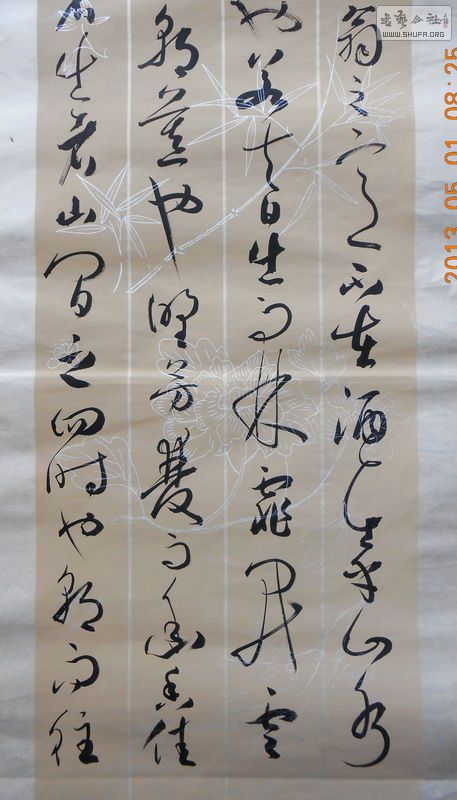 翁之意不在酒在乎山水
也若夫日出而林霏開雲
朝暮也野芳發而幽香佳
石出者山間之四時也朝而往
書藝公社
WWW.SHUFA.ORG
2013 05 01 08:25